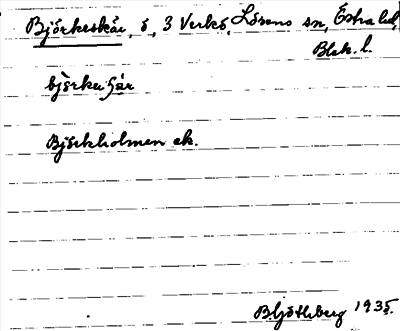 Björkeskär, ö, 3 Verkö, Lösens sn, Östra hd,
Blek. l.
björke
Björkholmen ek.
B. Ljötlsberg 1935.